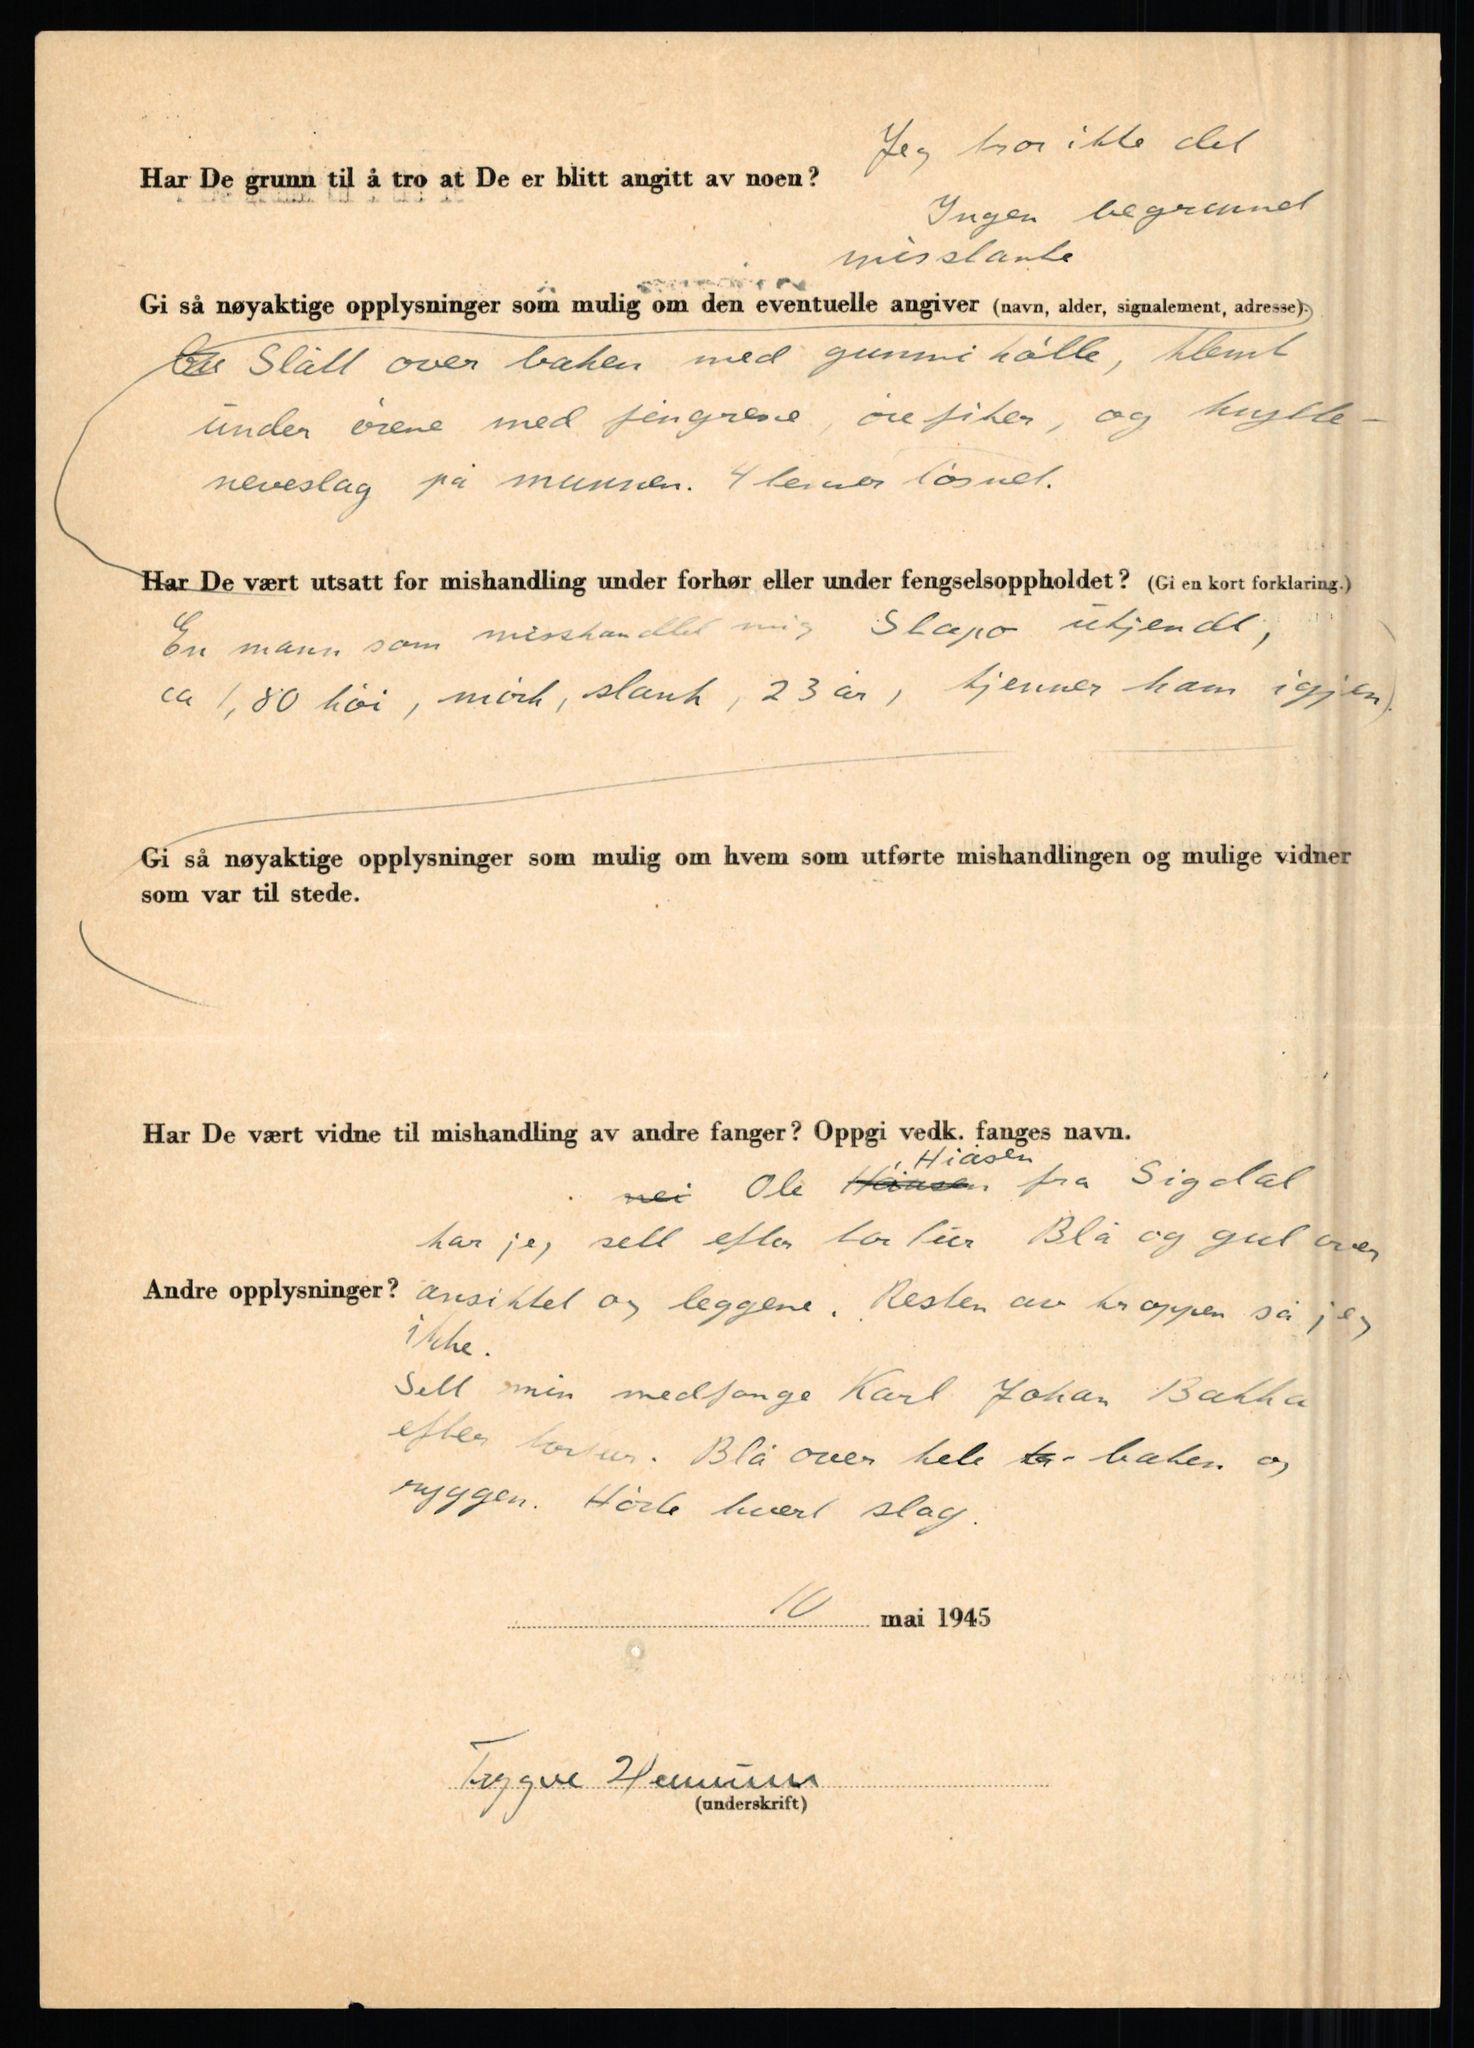 Jeg tror ikke det
Har De grunn til å tro at De er blitt angitt av noen?
Ingen begrunnet
misstanke
Gi så nøyaktige opplysninger som mulig om den eventuelle angiver (navn, alder, signalement, adresse).
Slått over baken med gummikølle, klemt
under ørene med fingrene, ørefiker, og knytte-
neveslag på munnen. 4 tenner løsnet.
Har De vært utsatt for mishandling under forhør eller under fengselsoppholdet? (Gi en kort forklaring.)
En mann som misshandlet mig Stapo ukjendt,
ca 1,80 høi, mørk, slank, 23 år, kjenner ham igjen).
Gi så nøyaktige opplysninger som mulig om hvem som utførte mishandlingen og mulige vidner
som var til stede.
Har De vært vidne til mishandling av andre fanger? Oppgi vedk. fanges navn.
Hiåsen
nei Ole fra Sigdal
har jeg sett efter tortur Blå og gul over
Andre opplysninger? ansiktet og leggene. Resten av kroppen så jeg
ikke.
Sett min medfange Karl Johan Bakka
efter tortur. Blå over hele baken og
ryggen. Hørte hvert slag.
10 mai 1945
Trygve
(underskrift)